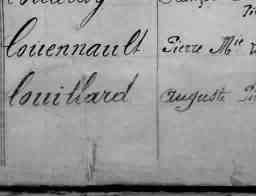 Couennault Pierre Mie
Couillard auguste